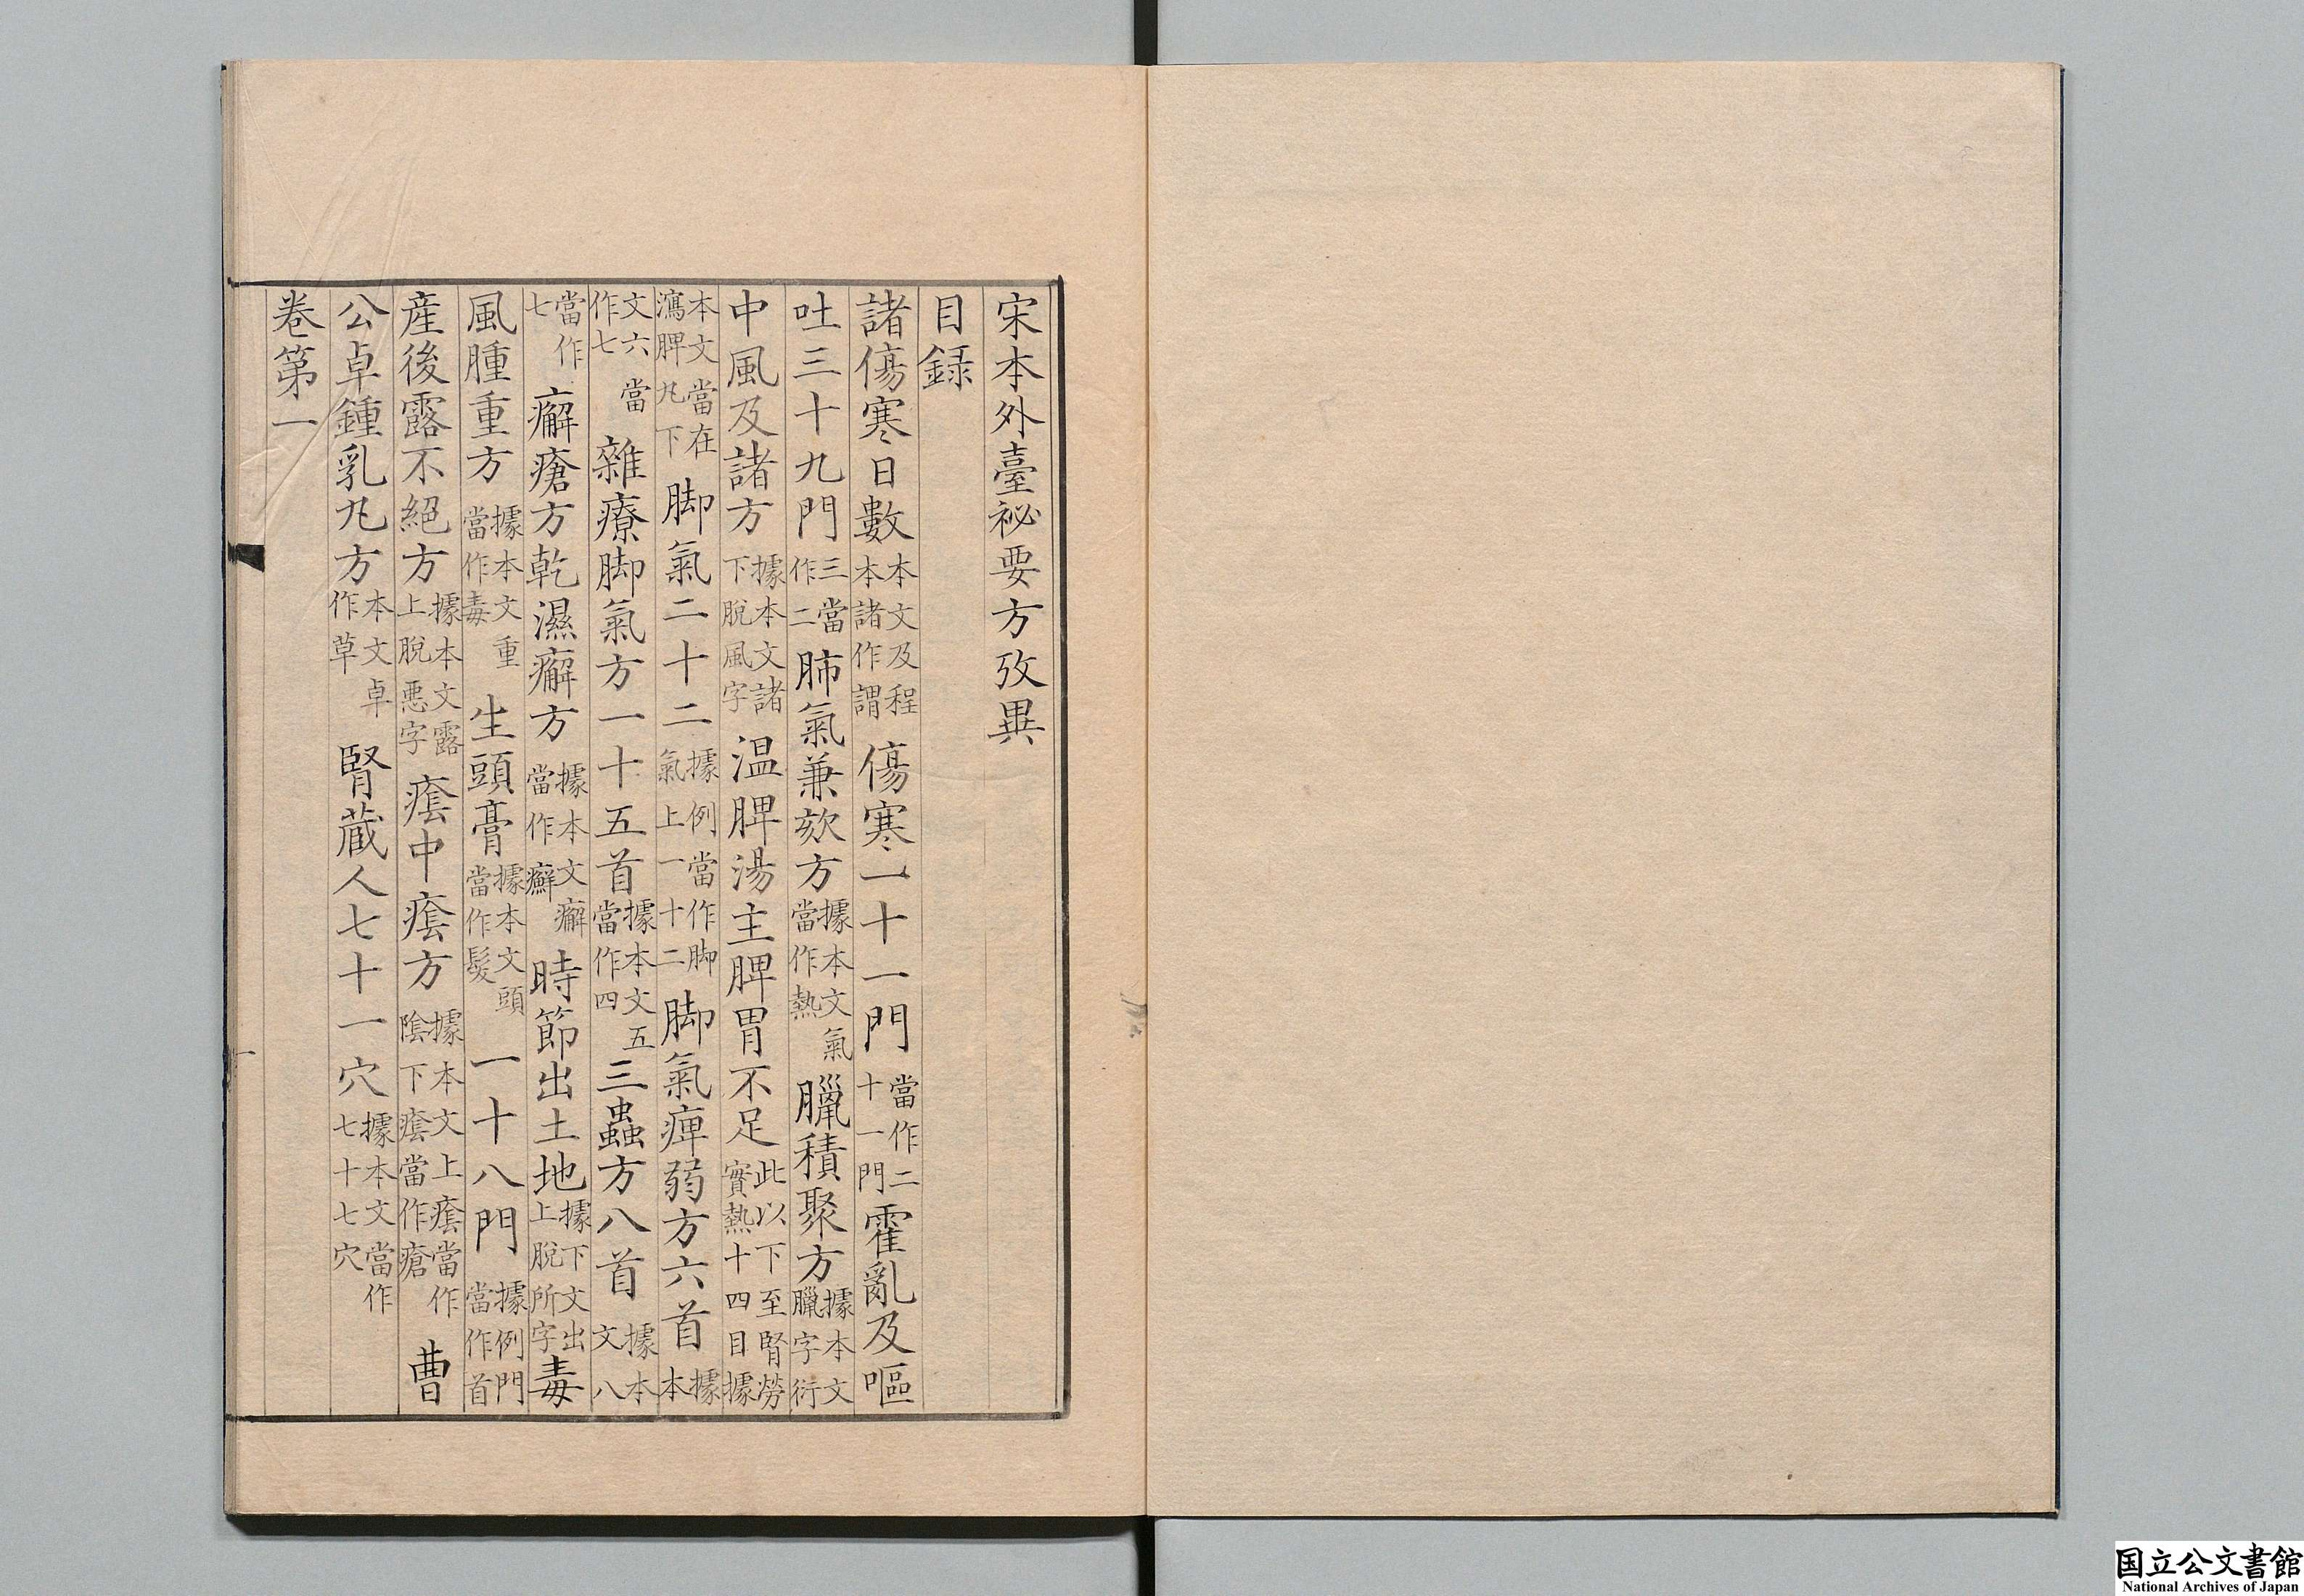 宋本外臺祕要方攷異
目録
諸傷寒日數本文及程本諸作謂傷寒一十一門當作二十一門霍亂及嘔
吐三十九門三當作二肺氣兼欬方據本文氣當作熱臘積聚方據本文臘字衍
中風及諸方據本文諸下脫風字温脾湯主脾胃不足此以下至腎勞實熱十四目據
本文當在瀉脾丸下脚氣二十二據例當作脚氣上一十二脚氣痺弱方六首據本
文六當作七雜療脚氣方一十五首據本文五當作四三蟲方八首據本文八
當作七癬瘡方乾濕癬方據本文癬當作癬時節出土地據下文出上脫所字毒
風腫重方據本文重當作毒生頭膏據本文頭當作髮一十八門據例門當作首
産後露不絕方據本文露上脫悪字㿗中㿗方據本文上㿗當作陰下㿗當作瘡曹
公卓鍾乳丸方本文卓作草腎蔵人七十一穴據本文當作七十七穴
卷第一
一
国立公文書館
National Archives of Japan